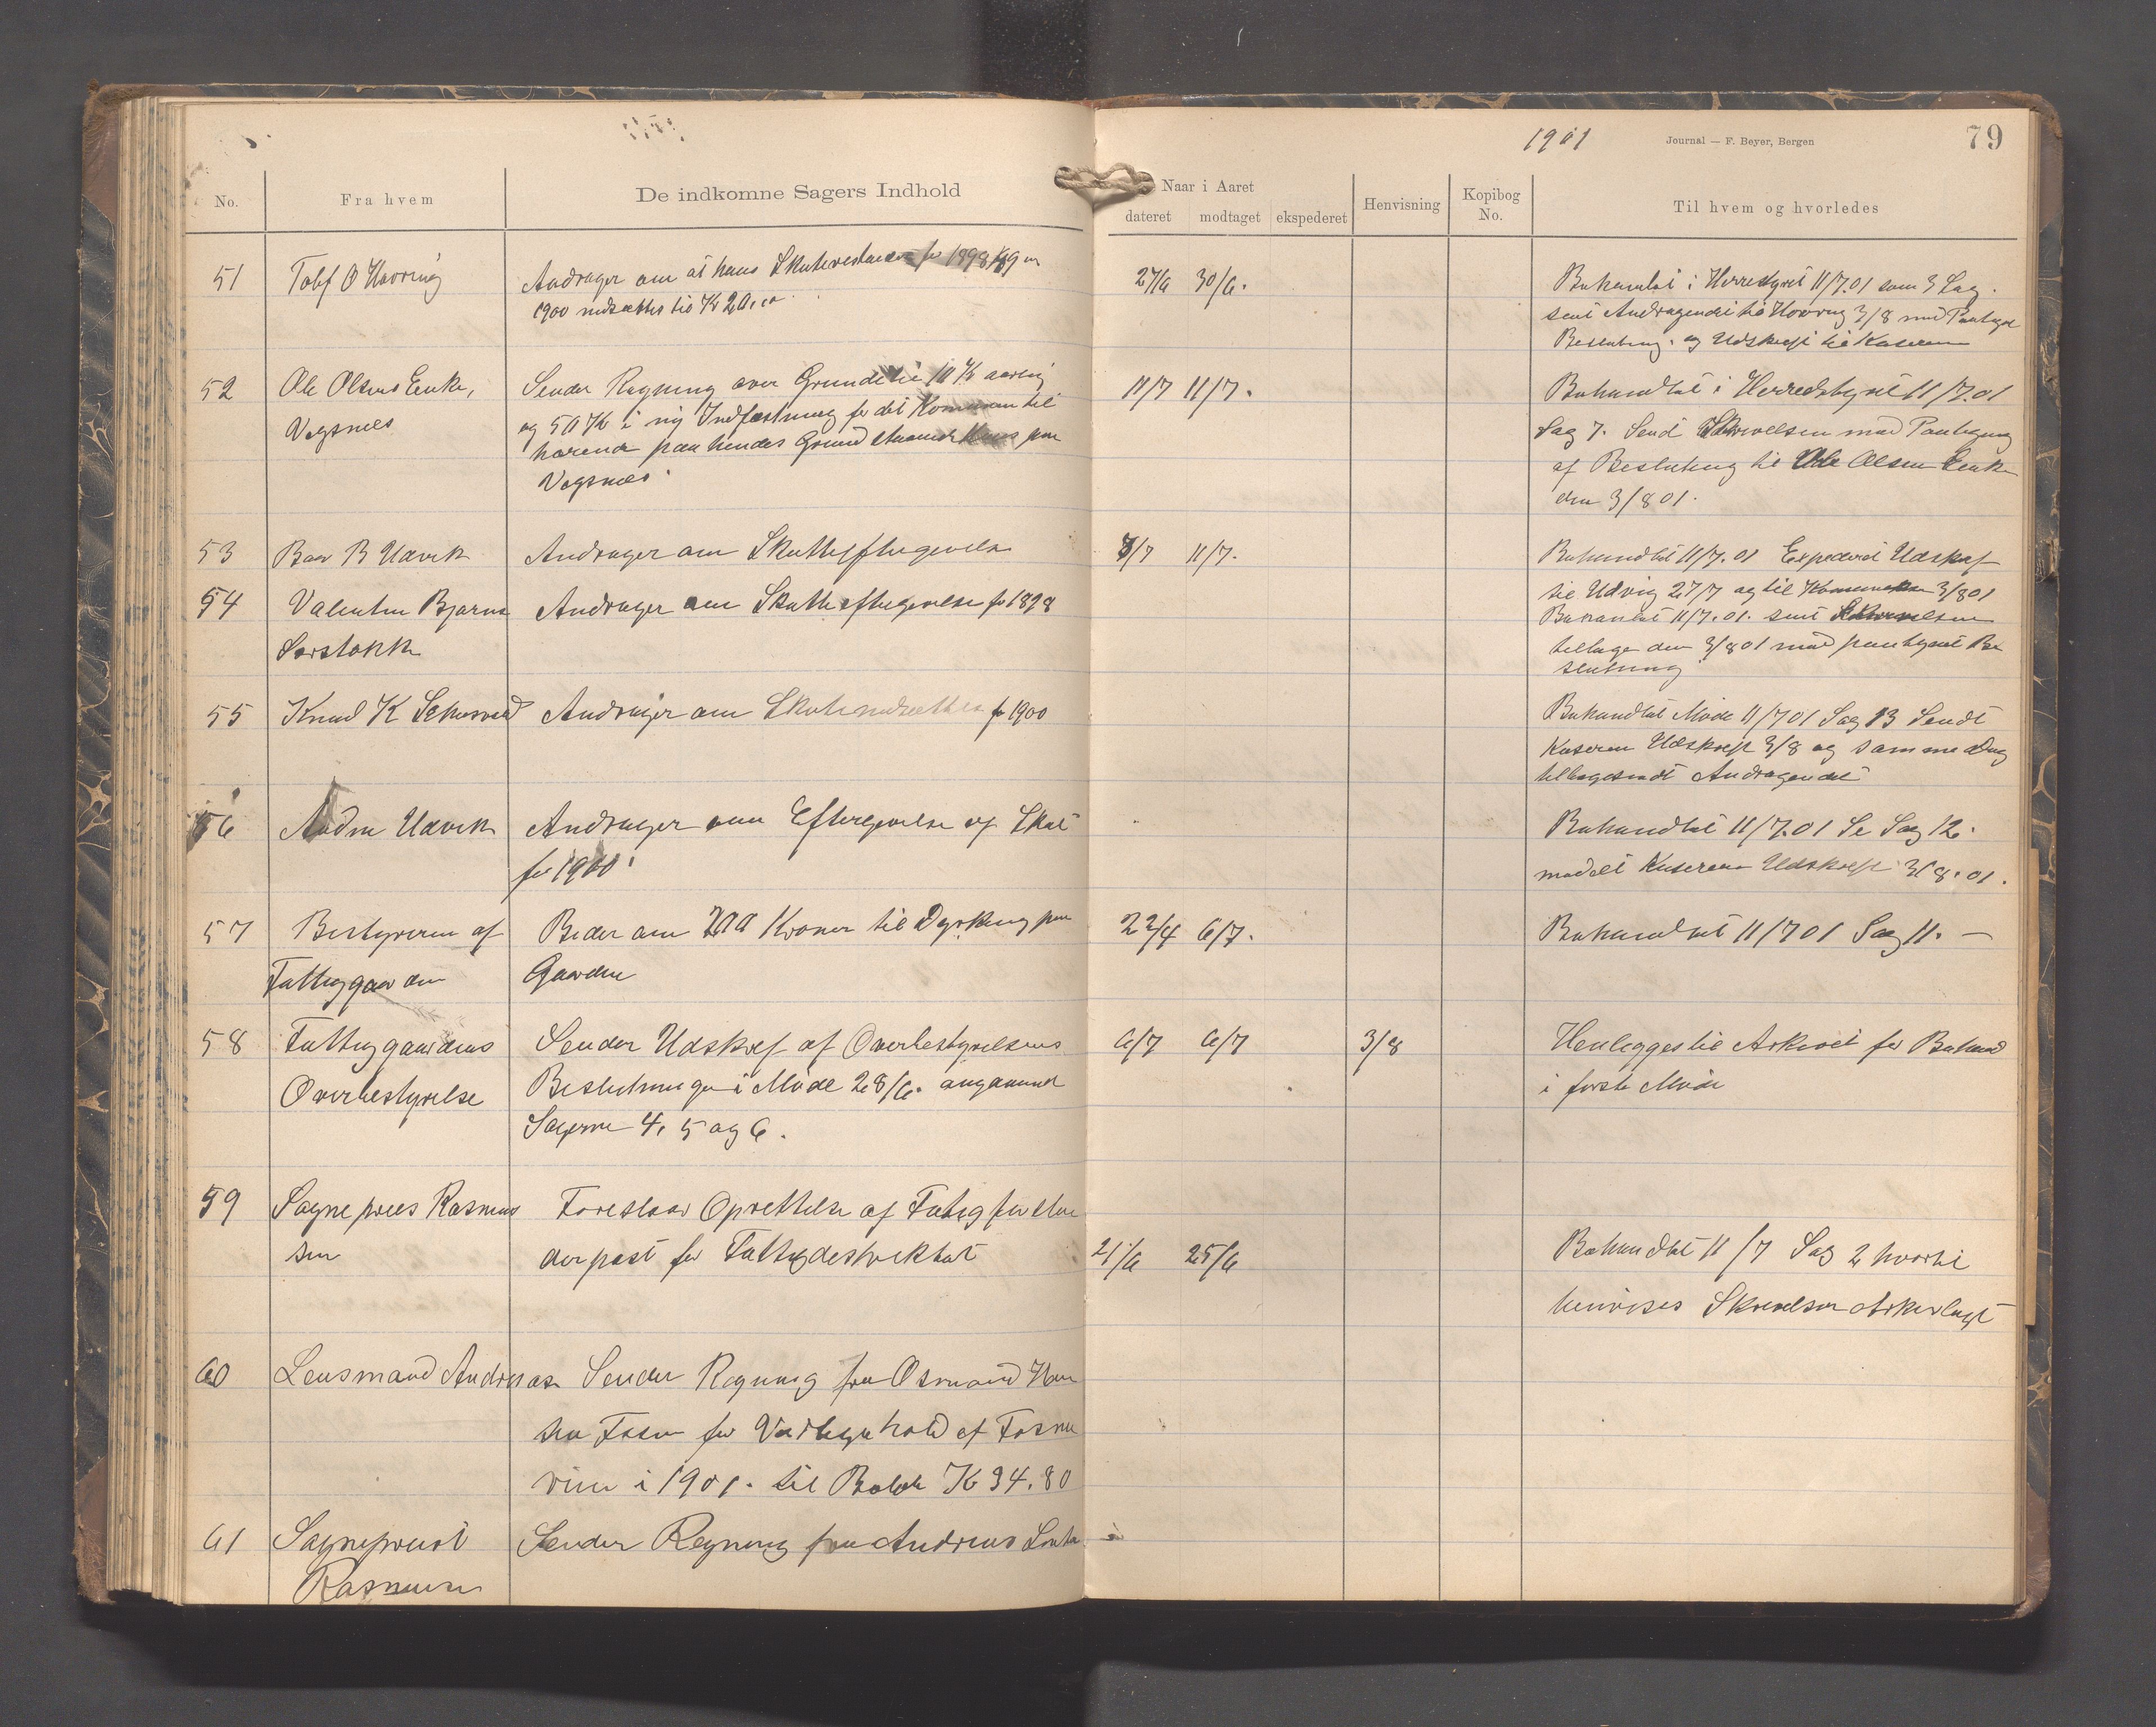 1901
Journal — F. Beyer, Bergen
79
No.
Fra hvem
De indkomne Sagers Indhold
Naar i Aaret
dateret
modtaget
ekspederet
Henvisning
Kopibog
No.
Til hvem og hvorledes
51
Andrager om at hans for 1898/99 og
27/6 30/6.
Behandlet i Herredstyret 11/7.01 som 3 Sag.
1900 nedsættes til Kr
sent Andragendet til 3/8 med Paategn
Beslutning. og Udskrift til Kaseren
52
Ole Olsens Enke,
Sender Regning over Grundleie 10 Kr aarlig
11/7 11/7.
Behandlet i Herredstyret 11/7.01
Vegsnæs
og 50 Kr i ny Indfæstning for det Kommunen til
Sag 7. Send Skrivelsen med Paategning
hørende paa hendes Grund staaende Huus paa
af Beslutning til Ole Olsens Enke
Vegsnæs.
den 3/8 01.
53
B Udvik
Andrager om Skatteeftergivelse
7/7 11/7.
Behandlet 11/7.01 Expederet Udskrift
til Udvig 27/7 og til 3/8 01
54
Valentin Bjarne
Andrager om Skatteeftergivelse for 1898
Behandlet 11/7.01. sent Skrivelsen
Sørstokke
tilbage den 3/8 01 med paategnet Be
slutning
55
Knud K
Andrager om for 1900
Behandlet Møde 11/7 01 Sag 13 Sendt
Kaseren Udskrift 3/8 og samme Dag
tilbagesendt Andragendet
56
Udvik
Andrager om Eftergivelse af Skat
Behandlet 11/7.01 Se Sag 12.
for 1900.
meddelt Kaseren Udskrift 3/8.01.
57
Bestyreren af
Beder om 200 Kroner til Dyrkning paa
22/4 6/7.
Behandlet 11/7 01 Sag 11. —
Fattiggaarden
Gaarden
58
Fattiggaardens
Sender Udskrift af Overbestyrelsens
6/7 6/7
3/8
Henlægges til Arkivet for Behand
Overbestyrelse
Beslutninger i Møde 28/6. angaaende
i første Møde
Sagerne 4, 5 og 6.
59
Sogneprest Rasmus
Foreslaar Oprettelse af Fattigforstan
sen
derpost for Fattigdistriktet
21/6 25/6
Behandlet 11/7 Sag 2 hvortil
henvises Skrivelsen Arkivlagt
60
Lensmand Andreasen
Sender Regning fra Osmund Han
sen Fosen for Vedligehold af Fosne
i 1901. til Beløb Kr 34.80
61
Sogneprest
Sender Regning fra Andreas
Rasmusen